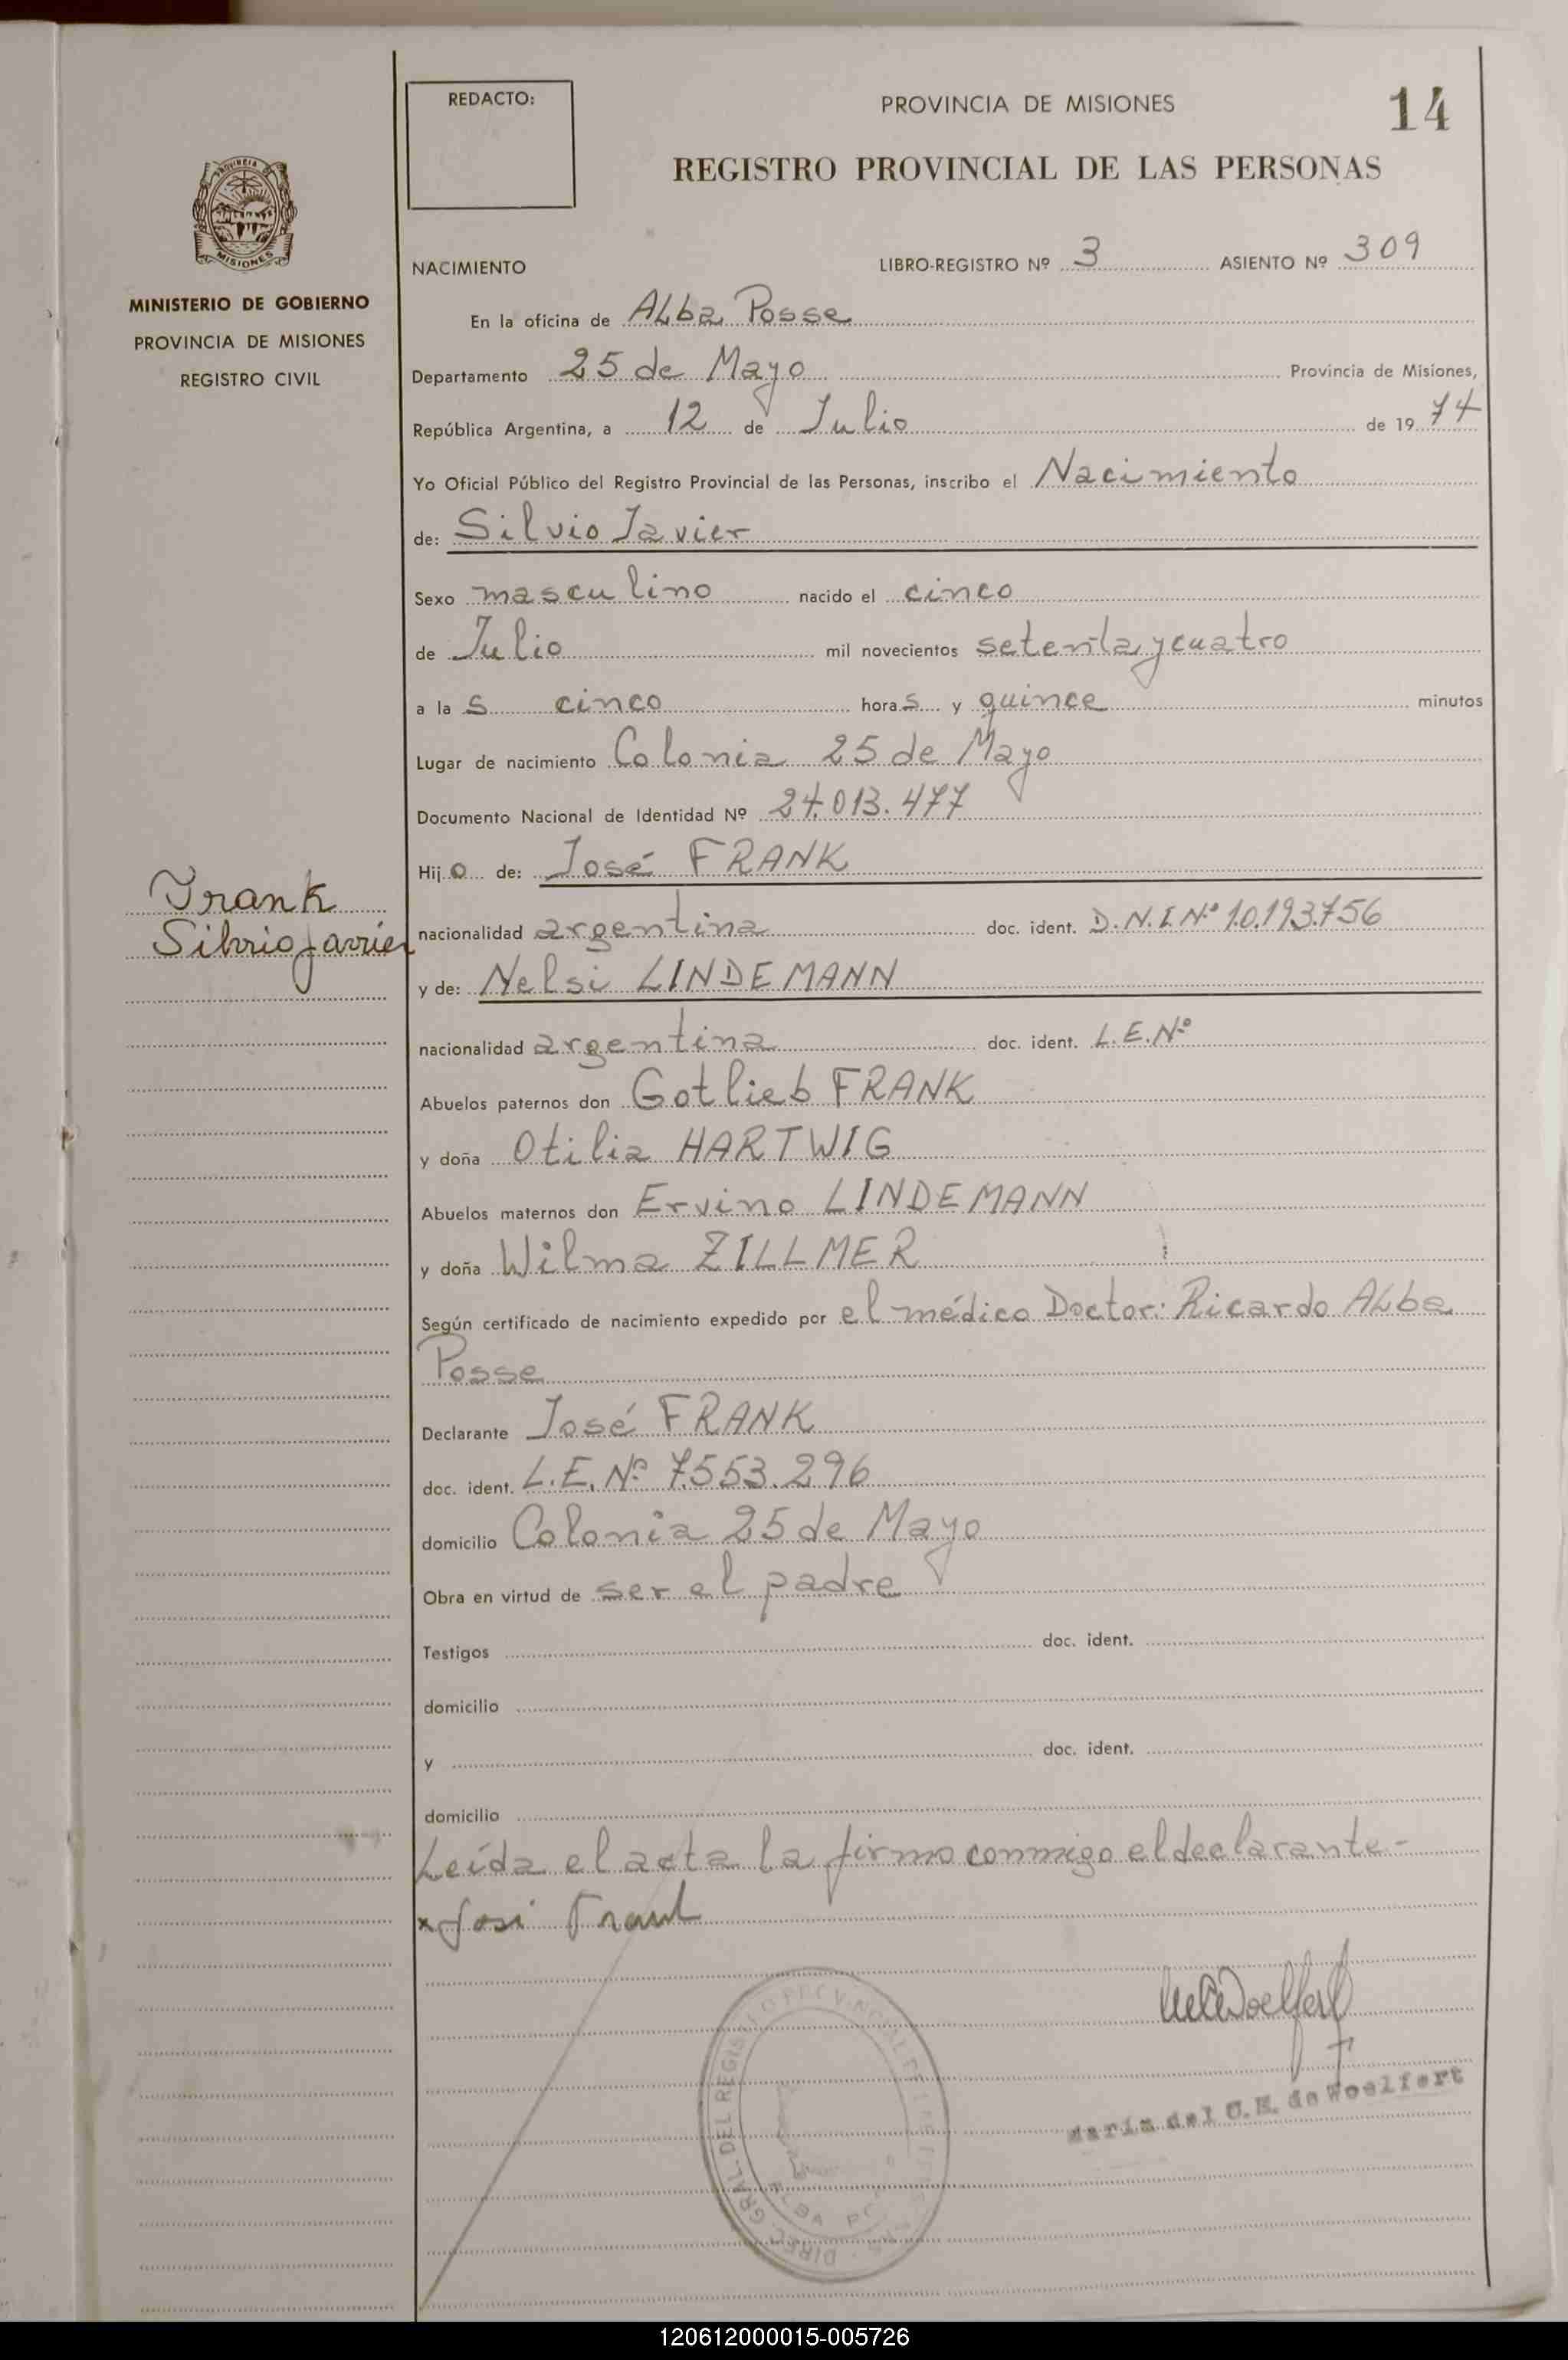 REDACTO:
PROVINCIA DE MISIONES
14
REGISTRO PROVINCIAL DE LAS PERSONAS
PROVINCIA
MISIONES
MINISTERIO DE GOBIERNO
PROVINCIA DE MISIONES
REGISTRO CIVIL
NACIMIENTO LIBRO-REGISTRO Nº 3 ASIENTO Nº 309
En la oficina de Alba Posse
Departamento 25 de Mayo Provincia de Misiones,
República Argentina, a 12 de Julio de 1974
Yo Oficial Público del Registro Provincial de las Personas, inscribo el Nacimiento
de: Silvio Javier
Sexo masculino nacido el cinco
de Julio mil novecientos setenta y cuatro
a la s cinco horas y quince minutos
Lugar de nacimiento Colonia 25 de Mayo
Documento Nacional de Identidad Nº 24.013.477
Hijo de: José FRANK
Frank
Silvio Javier
nacionalidad argentina doc. ident. D.N.I.Nº 10.193.756
y de: Nelsi LINDEMANN
nacionalidad argentina doc. ident. L.E.Nº
Abuelos paternos don Gotlieb FRANK
y doña Otilia HARTWIG
Abuelos maternos don Ervino LINDEMANN
y doña Wilma ZILLMER
Según certificado de nacimiento expedido por el médico Doctor: Ricardo Alba
Posse
Declarante José FRANK
doc. ident. L.E. Nº 7.553.296
domicilio Colonia 25 de Mayo
Obra en virtud de ser el padre
Testigos doc. ident.
domicilio
y doc. ident.
domicilio
Leída el acta la firma conmigo el declarante.-
x José Frank
Woelfert
María del C.E. de Woelfert
DIREC. GRAL. DEL REGISTRO PROVINCIAL DE LAS PERSONAS
ALBA POSSE
120612000015-005726